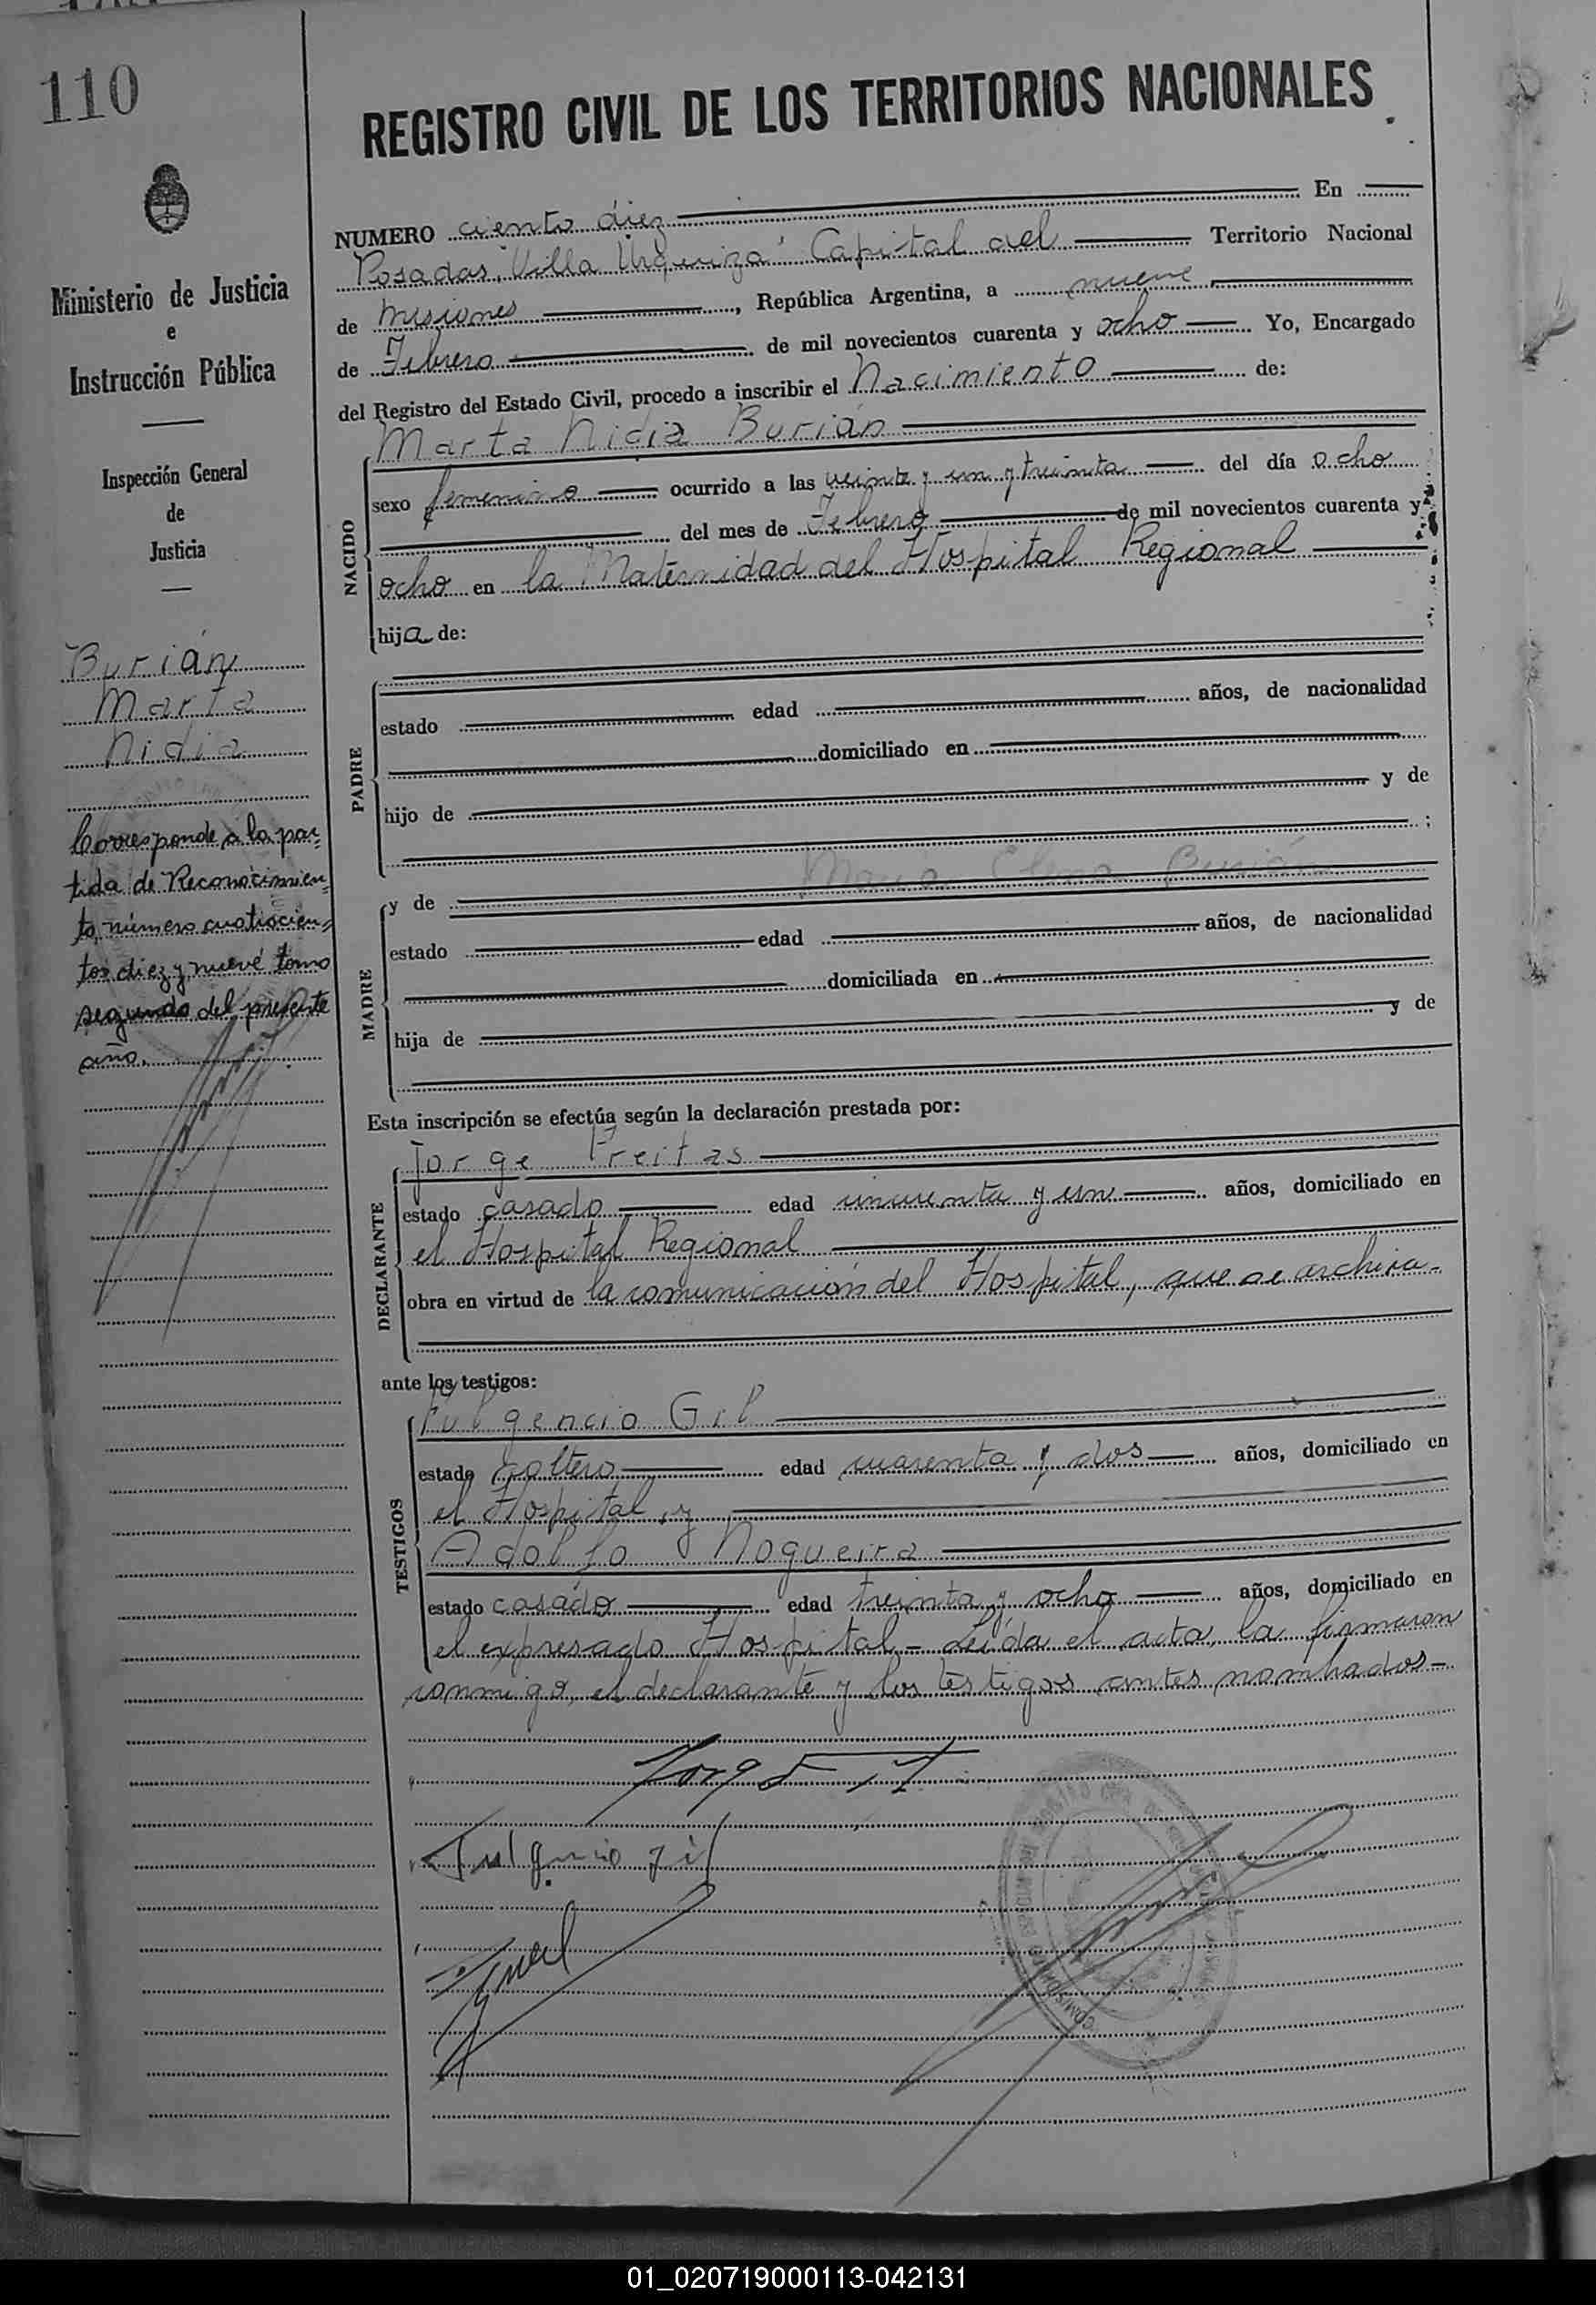 110
REGISTRO CIVIL DE LOS TERRITORIOS NACIONALES
Ministerio de Justicia
e
Instrucción Pública
Inspección General
de
Justicia
Burián
Marta
Nidia
Corresponde a la par=
tida de Reconocimien=
to, número cuatrocien=
tos diez y nueve tomo
segundo del presente
año.
NUMERO ciento diez En
Posadas, Villa Urquiza Capital del Territorio Nacional
de Misiones, República Argentina, a nueve
de Febrero de mil novecientos cuarenta y ocho Yo, Encargado
del Registro del Estado Civil, procedo a inscribir el Nacimiento de:
NACIDO
Marta Nidia Burián
sexo femenino ocurrido a las veinte y un y treinta del día ocho
del mes de Febrero de mil novecientos cuarenta y
ocho en la Maternidad del Hospital Regional
hija de:
PADRE
estado edad años, de nacionalidad
domiciliado en
hijo de y de
;
MADRE
María Elena Burián
y de
estado edad años, de nacionalidad
domiciliada en
hija de y de
Esta inscripción se efectúa según la declaración prestada por:
DECLARANTE
Jorge Freitas
estado casado edad cincuenta y un años, domiciliado en
el Hospital Regional
obra en virtud de la comunicación del Hospital, que se archiva.
ante los testigos:
TESTIGOS
Fulgencio Gil
estado soltero edad cuarenta y dos años, domiciliado en
el Hospital, y
Adolfo Nogueira
estado casado edad treinta y ocho años, domiciliado en
el expresado Hospital - Leída el acta, la firmaron
conmigo, el declarante y los testigos antes nombrados-
Fulgencio Gil
01_020719000113-042131